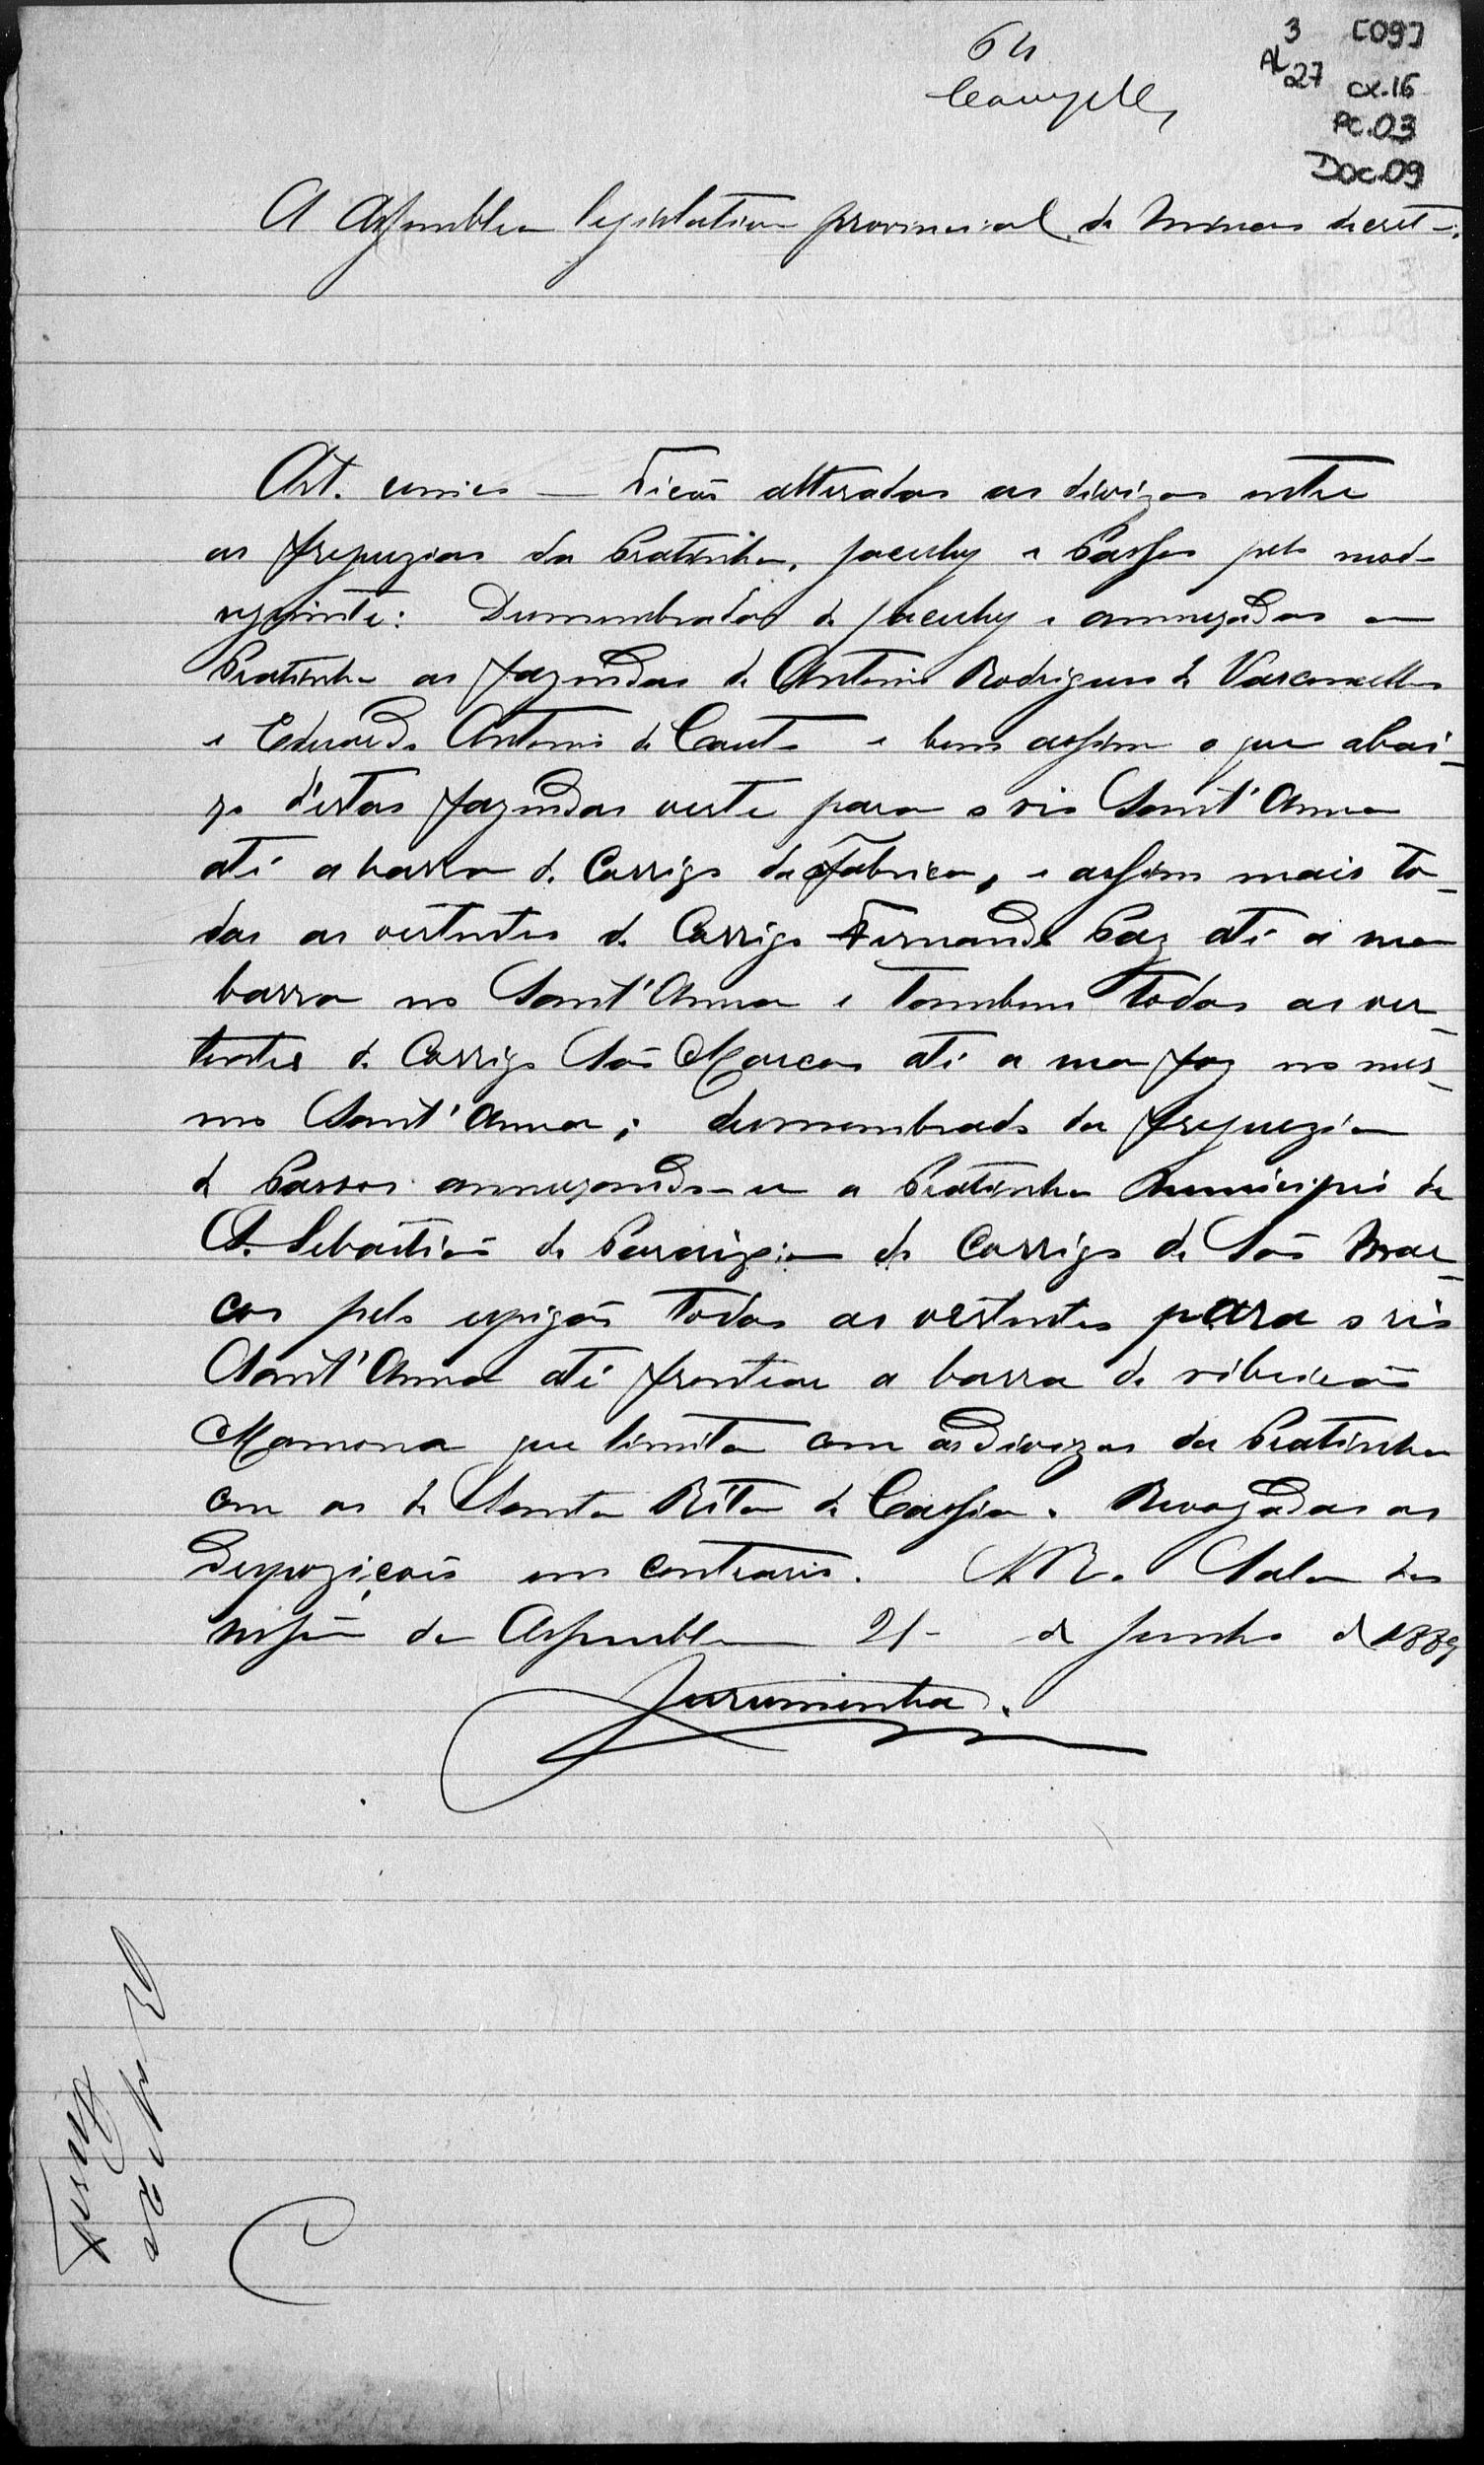 64
3 [09]
AL 27 cx.16
PC.03
Doc.09
A Assemblea legislativa provincial de Minas decreta.
Art. unico — Ficão alteradas as divizas entre
as freguezias da Pratinha, Jacuhy e Passos pelo modo
seguinte: Desmembradas de Jacuhy e annexadas a
Pratinha as fazendas de Antonio Rodrigues de Vasconcellos
e Eduardo Antonio do Couto e bem assim o que abai-
xo d'estas fazendas verte para o rio Sant'Anna
até a barra do Corrigo da Fabrica, e assim mais to-
das as vertentes do Corrigo Fernando Paz até a sua
barra no Sant'Anna e tambem todas as ver-
tentes do Corrigo São Marcos até a sua foz no mes-
mo Sant'Anna; desmembrado da freguezia
de Passos annexando-se a Pratinha Municipio de
S. Sebastião do Paraizo do Corrigo de São Mar-
cos pelo espigão todas as vertentes para o rio
Sant'Anna até frontear a barra do ribeirão
Mamona que limita com as divizas da Pratinha
com as de Santa Rita de Cassia. Revogadas as
despozições em contrario. S. R. Sala das
sessões da Assemblea 21 de Junho de 1889
Jurumenha.